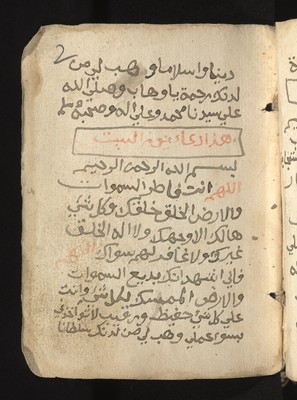 2
دينا واسلاما وهب لي من
لدنك رحمة يا وهاب وصلى الله
على سيدنا محمد وعلى اله وصحبه وسلم
هذا دعاء يوم السبت
بسم الله الرحمن الرحيم
اللهم انت فاطر السموات
والارض الخلق خلقك وكل شئ
هالك الا وجهك ولا اله الخلق
غيرك ولا لهم سواك اللهم
واني اشهد انك بديع السموات
والارض بكل شئ وانت
على كل شئ حفيظ ورقيب لا تؤاخذني
بسوء عملي وهب لي من لدنك سلطانا